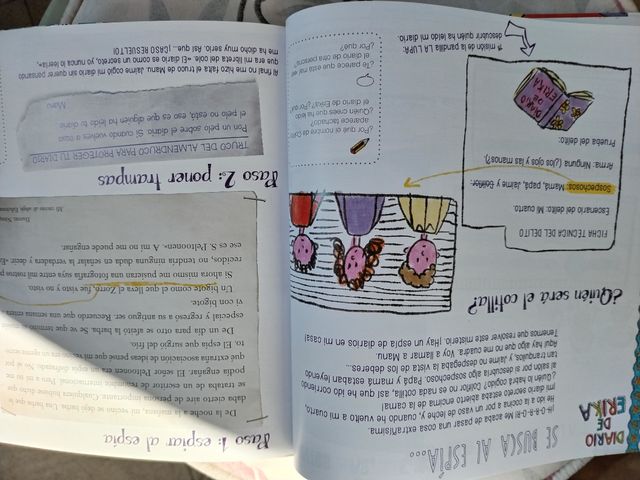 DIARIO
DE
ERIKA
SE BUSCA AL ESPÍA...
¡H-O-R-R-O-R! Me acaba de pasar una cosa extrañísima.
He ido a la cocina a por un vaso de leche y, cuando he vuelto a mi cuarto,
¡mi diario secreto estaba abierto encima de la cama!
¿Quién lo habrá cogido? Colitor no es nada cotilla, así que he ido corriendo
al salón para ver si descubría algo sospechoso. Papá y mamá estaban leyendo
tan tranquilos, y Jaime no despegaba la vista de los deberes...
Aquí hay algo que no me cuadra. Voy a llamar a Manu.
Tenemos que resolver este misterio. ¡Hay un espía de diarios en mi casa!
¿Quién será el cotilla?
FICHA TÉCNICA DEL DELITO
Escenario del delito: Mi cuarto.
Sospechosos: Mamá, papá, Jaime y Colitor.
Arma: Ninguna (¿los ojos y las manos?).
Prueba del delito:
DIARIO
DE
ERIKA
1.ª misión de la pandilla LA LUPA:
descubrir quién ha leído mi diario.
¿Por qué el nombre de
aparece tachado?
¿Quién crees que ha leído
el diario de Erika? ¿Por qué?
¿Te parece que está mal leer
el diario de otra persona?
¿Por qué?
Paso 1: espiar al espía
De la noche a la mañana, mi vecino se dejó barba. Una barba que le
daba cierto aire de persona importante. Cualquiera hubiera dicho que
se trataba de un escritor de renombre internacional. Pero a mí no me
podía engañar. El señor Peltoonen era un espía
qué extraña asociación de ideas pensé que mi vecino era un agente secre-
to. El espía que surgió del frío.
De un día para otro se afeitó la barba. Se ve que terminó
especial y regresó a su antiguo ser. Recuerdo que una semana entera
vi con bigote.
Un bigote como el que lleva el Zorro, fue visto y no visto.
Si ahora mismo me pusieran una fotografía suya entre mil rostros pa-
recidos, no tendría ninguna duda en señalar la verdadera y decir: «Es
ese es S. Peltoonen». A mí no me puede engañar.
Paso 2: poner trampas
TRUCO DEL ALMENDRUCO PARA PROTEGER TU DIARIO
Pon un pelo sobre el diario. Si cuando vuelves a casa
el pelo no está, eso es que alguien ha leído tu diario.
Manu
Al final no me hizo falta el truco de Manu. Jaime cogió mi diario sin querer pensando
que era mi libro del cole. «El diario es como un secreto, yo nunca lo leería»,
me ha dicho muy serio. Así que... ¡CASO RESUELTO!